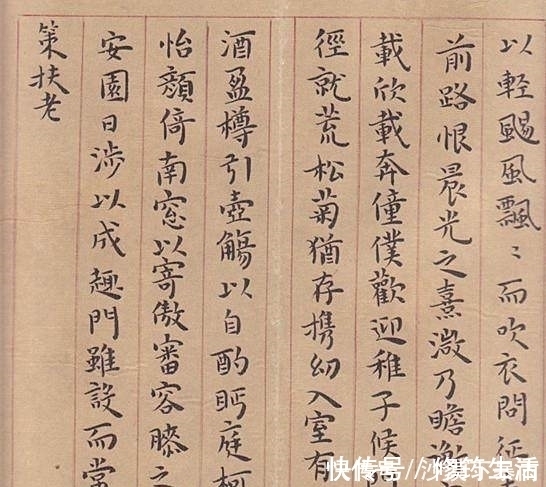 以輕颺風飄〻而吹衣問征
前路恨晨光之熹微乃瞻衡
載欣載奔僮僕歡迎稚子候
徑就荒松菊猶存携幼入室有
酒盈樽引壺觴以自酌眄庭柯
怡顏倚南窓以寄傲審容膝之
安園日涉以成趣門雖設而常
策扶老
快传号/